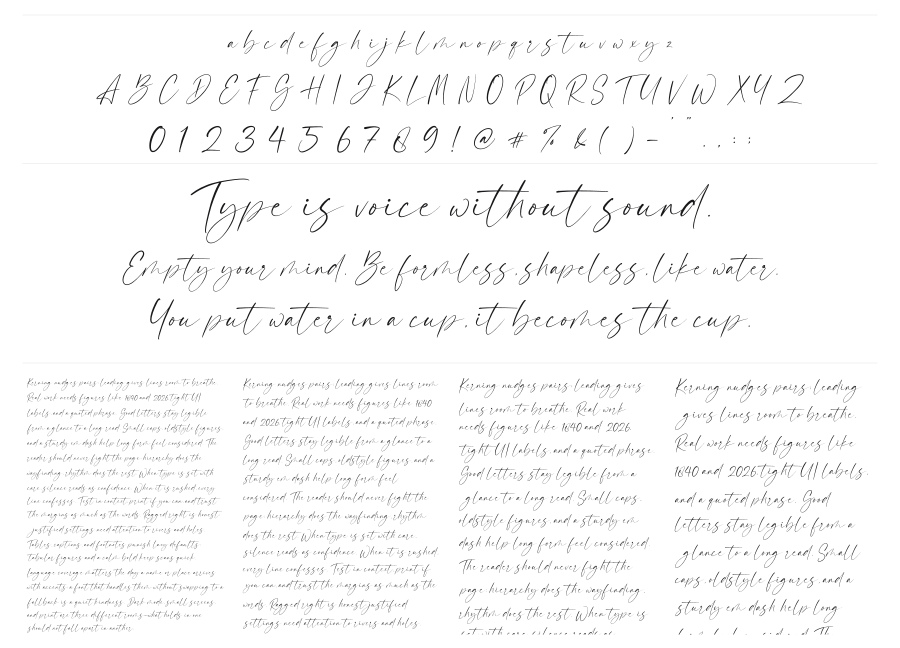 a b c d e f g h i j k l m n o p q r s t u v w x y z
A B C D E F G H I J K L M N O P Q R S T U V W X Y Z
0 1 2 3 4 5 6 7 8 9 ! @ # % & ( ) - ' " . , : ;
Type is voice without sound.
Empty your mind. Be formless, shapeless, like water.
You put water in a cup, it becomes the cup.
Kerning nudges pairs. Leading gives lines room to breathe.
Real work needs figures like 1640 and 2026, tight UI
labels, and a quoted phrase. Good letters stay legible
from a glance to a long read. Small caps, oldstyle figures,
and a sturdy em dash help long form feel considered. The
reader should never fight the page; hierarchy does the
wayfinding, rhythm does the rest. When type is set with
care, silence reads as confidence. When it is rushed, every
line confesses. Test in context, print if you can, and trust
the margins as much as the words. Ragged right is honest;
justified settings need attention to rivers and holes.
Tables, captions, and footnotes punish lazy defaults.
tabular figures and a calm bold keep scans quick.
language coverage matters the day a name or place arrives
with accents; a font that handles them without swapping to a
fallback is a quiet kindness. Dark mode, small screens,
and print are three different rooms—what holds in one
should not fall apart in another.
Kerning nudges pairs. Leading gives lines room
to breathe. Real work needs figures like 1640
and 2026, tight UI labels, and a quoted phrase.
Good letters stay legible from a glance to a
long read. Small caps, oldstyle figures, and a
sturdy em dash help long form feel
considered. The reader should never fight the
page; hierarchy does the wayfinding, rhythm
does the rest. When type is set with care,
silence reads as confidence. When it is rushed,
every line confesses. Test in context, print if
you can, and trust the margins as much as the
words. Ragged right is honest; justified
settings need attention to rivers and holes.
Kerning nudges pairs. Leading gives
lines room to breathe. Real work
needs figures like 1640 and 2026,
tight UI labels, and a quoted phrase.
Good letters stay legible from a
glance to a long read. Small caps,
oldstyle figures, and a sturdy em
dash help long form feel considered.
The reader should never fight the
page; hierarchy does the wayfinding,
rhythm does the rest. When type is
set with care, silence reads as
Kerning nudges pairs. Leading
gives lines room to breathe.
Real work needs figures like
1640 and 2026, tight UI labels,
and a quoted phrase. Good
letters stay legible from a
glance to a long read. Small
caps, oldstyle figures, and a
sturdy em dash help long